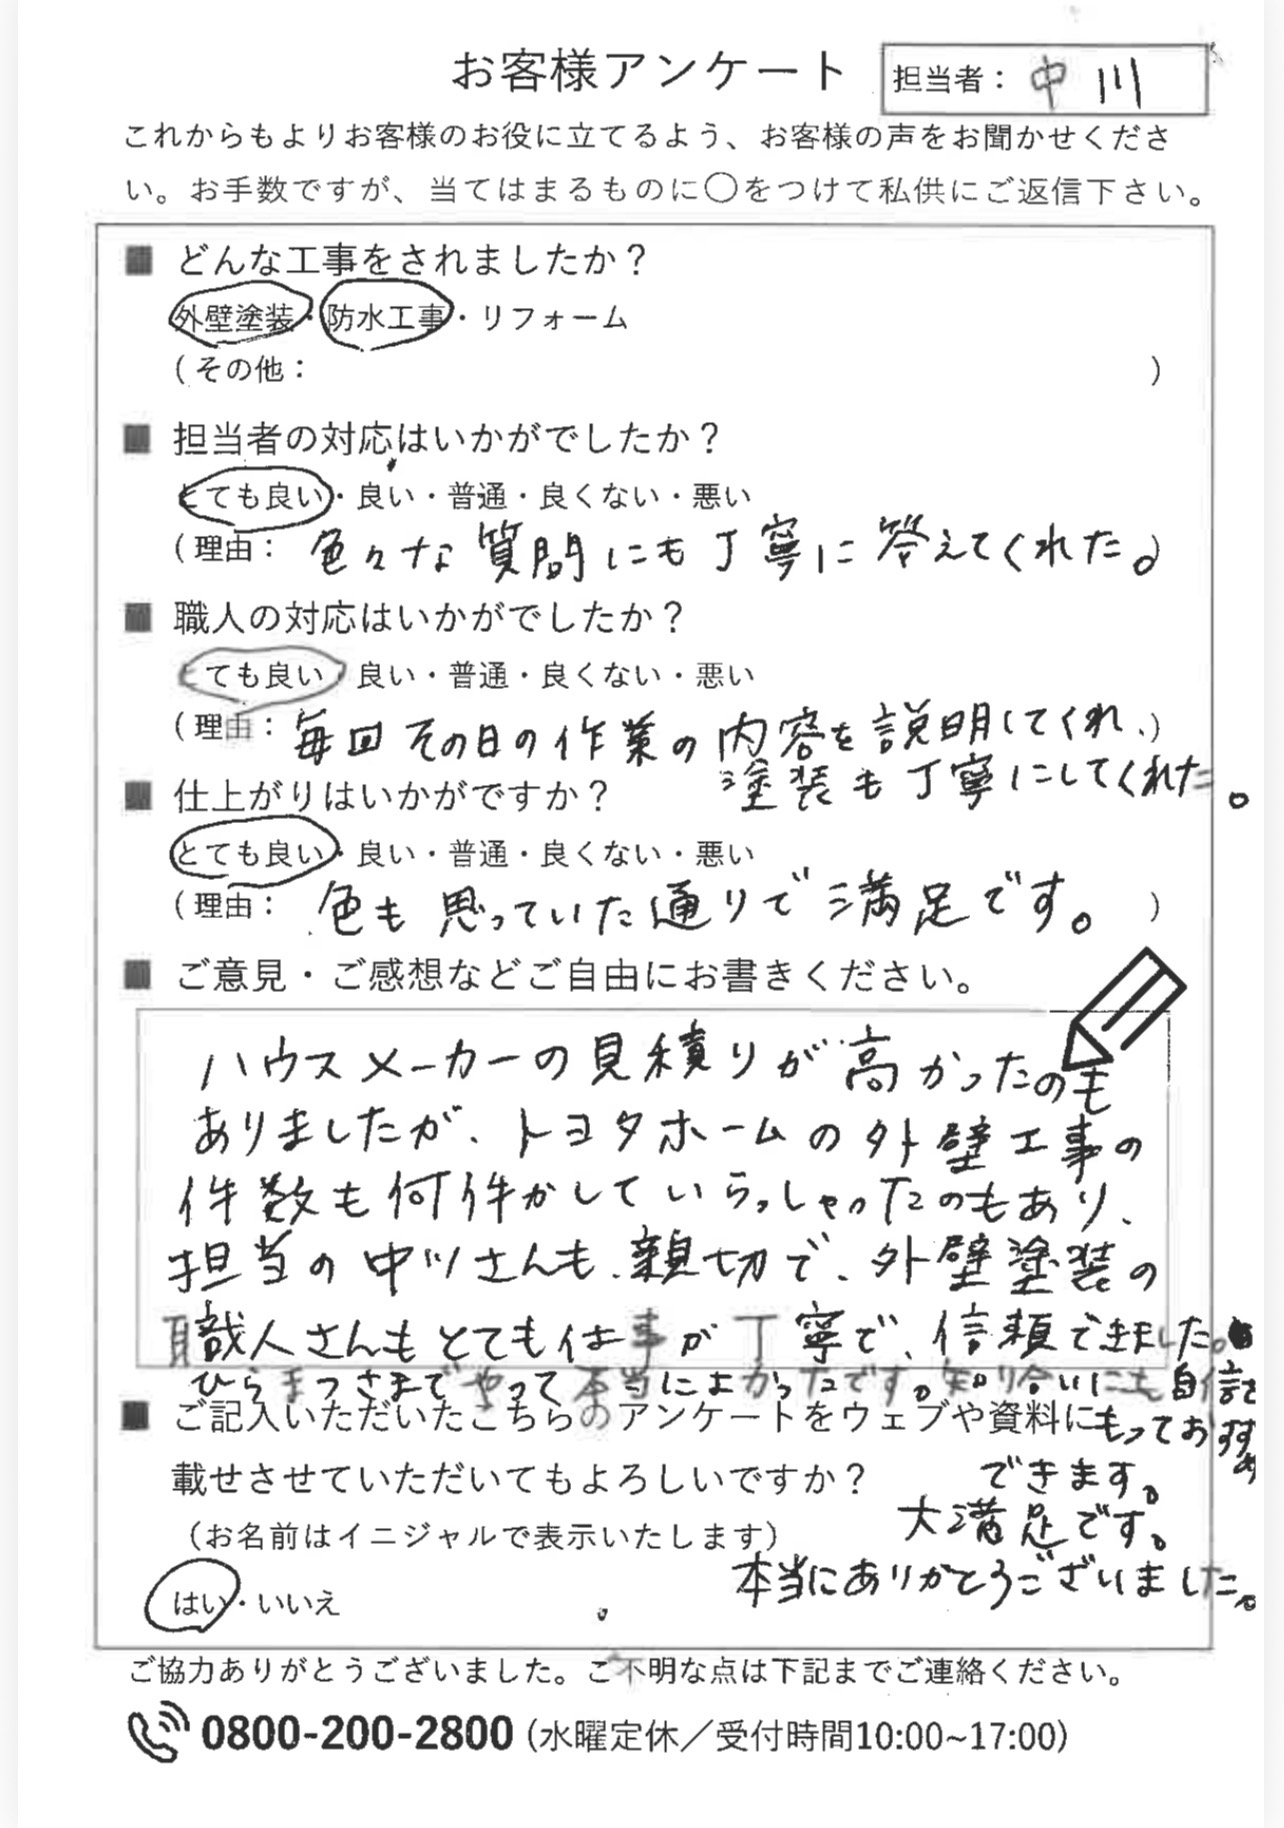 お客様アンケート
担当者： 中川
これからもよりお客様のお役に立てるよう、お客様の声をお聞かせくださ
い。お手数ですが、当てはまるものに〇をつけて私供にご返信下さい。
■ どんな工事をされましたか？
外壁塗装・防水工事・リフォーム
（その他： ）
■ 担当者の対応はいかがでしたか？
とても良い・良い・普通・良くない・悪い
（理由： 色々な質問にも丁寧に答えてくれた。）
■ 職人の対応はいかがでしたか？
とても良い・良い・普通・良くない・悪い
（理由： 毎回その日の作業の内容を説明してくれ、）
塗装も丁寧にしてくれた。
■ 仕上がりはいかがですか？
とても良い・良い・普通・良くない・悪い
（理由： 色も思っていた通りで満足です。 ）
■ ご意見・ご感想などご自由にお書きください。
ハウスメーカーの見積りが高かったのも
ありましたが、トヨタホームの外壁工事の
件数も何件かしていらっしゃったのもあり、
担当の中川さんも、親切で、外壁塗装の
職人さんもとても仕事が丁寧で、信頼できました。
ひらまつさまでやって本当によかったです。知り合いにも自信を
もっておすすめ
できます。
大満足です。
本当にありがとうございました。
■ ご記入いただいたこちらのアンケートをウェブや資料に
載せさせていただいてもよろしいですか？
（お名前はイニジャルで表示いたします）
はい・いいえ
ご協力ありがとうございました。ご不明な点は下記までご連絡ください。
0800-200-2800 (水曜定休／受付時間10:00~17:00)